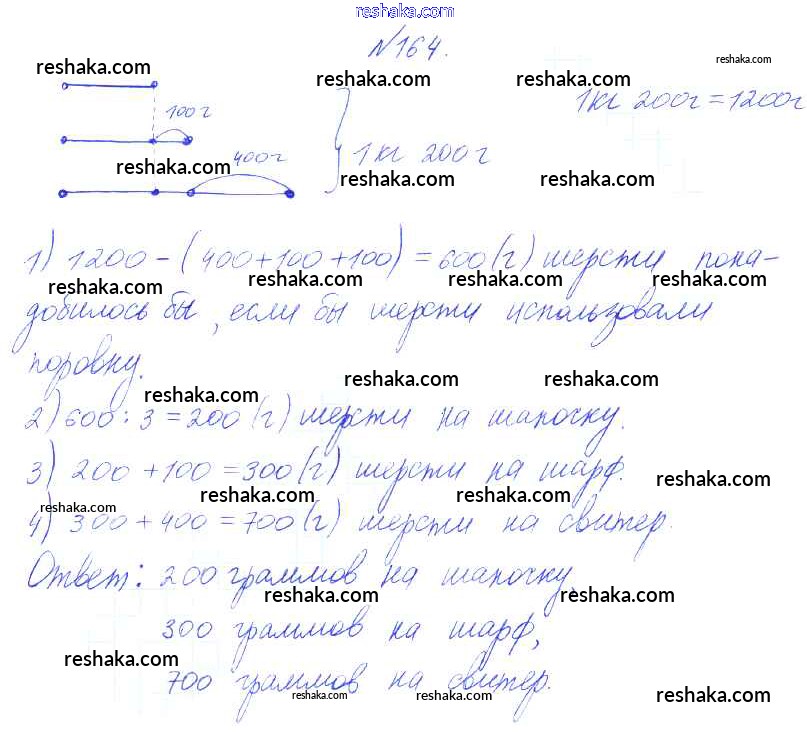 reshaka.com
№164.
reshaka.com reshaka.com reshaka.com reshaka.com
100г
1кг 200г = 1200г
400г
1кг 200г
reshaka.com reshaka.com reshaka.com
1) 1200 - (400+100+100) = 600(г) шерсти пона-
reshaka.com reshaka.com reshaka.com reshaka.com
добилось бы, если бы шерсти использовали
поровну.
reshaka.com reshaka.com reshaka.com
2) 600 : 3 = 200 (г) шерсти на шапочку.
3) 200 + 100 = 300 (г) шерсти на шарф.
reshaka.com reshaka.com reshaka.com reshaka.com
4) 300 + 400 = 700 (г) шерсти на свитер.
Ответ: 200 граммов на шапочку,
reshaka.com reshaka.com reshaka.com
300 граммов на шарф,
reshaka.com
700 граммов на свитер.
reshaka.com reshaka.com reshaka.com